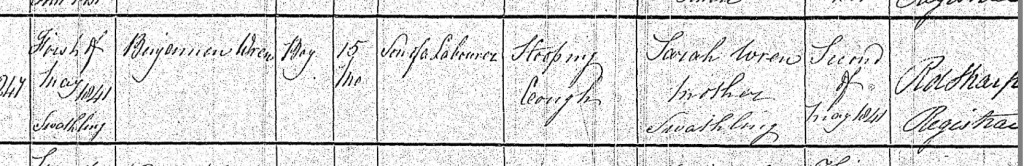 247
First of
May 1841
Swathling
Benjamin Wren
Boy
15
Mo
Son of a Labourer
Hooping
Cough
Sarah Wren
Mother
Swathling
Second
of
May 1841
Rd Sharp
Registrar